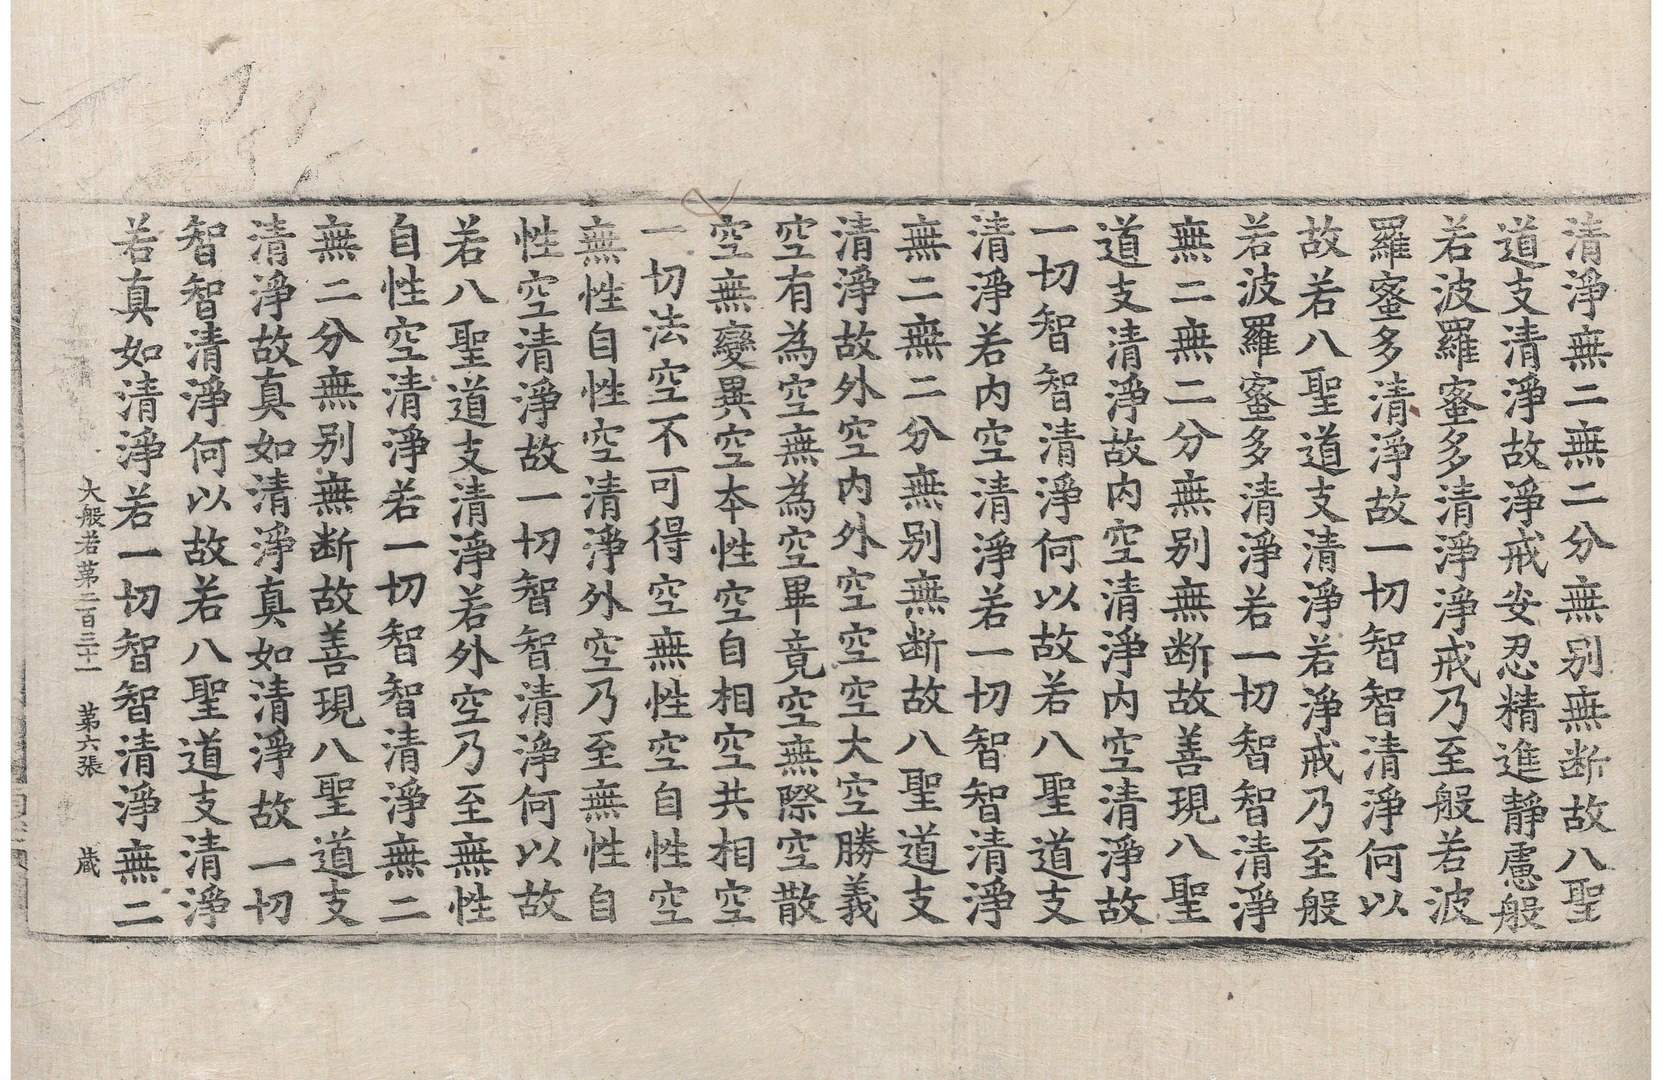 清淨無二無二分無別無断故八聖
道支清淨故淨戒安忍精進靜慮般
若波羅蜜多清淨淨戒乃至般若波
羅蜜多清淨故一切智智清淨何以
故若八聖道支清淨若淨戒乃至般
若波羅蜜多清淨若一切智智清淨
無二無二分無別無断故善現八聖
道支清淨故内空清淨内空清淨故
一切智智清淨何以故若八聖道支
清淨若内空清淨若一切智智清淨
無二無二分無別無断故八聖道支
清淨故外空内外空空空大空勝義
空有為空無為空畢竟空無際空散
空無變異空本性空自相空共相空
一切法空不可得空無性空自性空
無性自性空清淨外空乃至無性自
性空清淨故一切智智清淨何以故
若八聖道支清淨若外空乃至無性
自性空清淨若一切智智清淨無二
無二分無別無断故善現八聖道支
清淨故真如清淨真如清淨故一切
智智清淨何以故若八聖道支清淨
若真如清淨若一切智智清淨無二
大般若第二百三十一 第六張 蔵